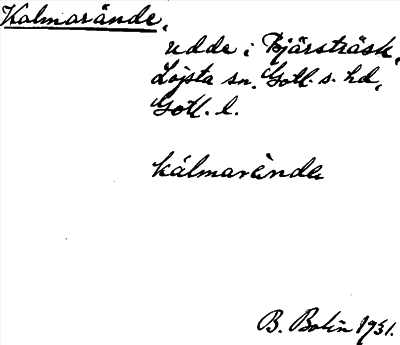 Kalmarände,
udde i Bjärsträsk,
Lojsta sn. Gotl. s. hd,
Gotl. l.
kálmarèndα
B. Bolin 1931.